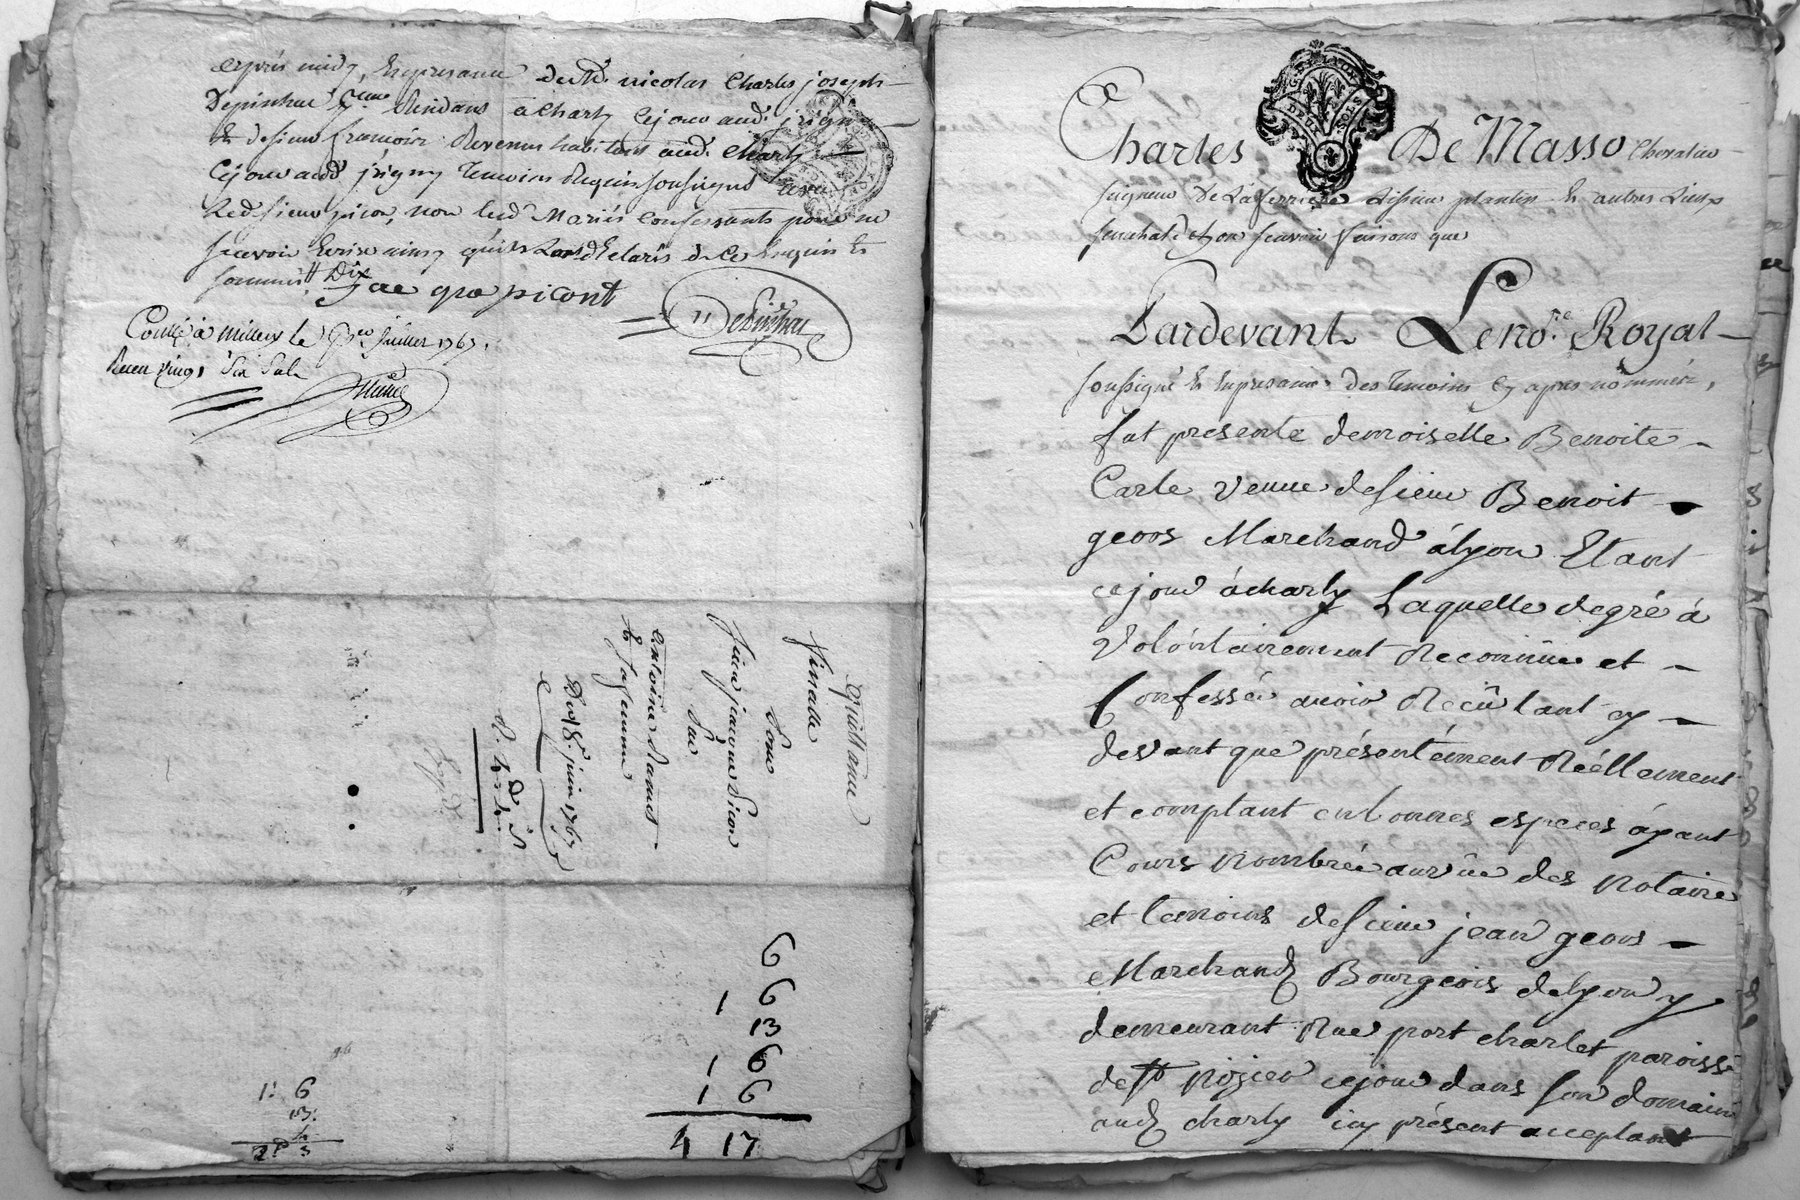 après midy, En presance dud. Sr. nicolas Charles joseph
Depinhac Residans à Charly Cejour aud. jrigny
& de sieur francois Revenus habitans aud. Charly
Cejour aud. jrigny Temoins Requis soussignés avec
Led. sieur picon, non lesd. Mariés Confessants pour ne
scavoir Ecrire ainsy qu'ils Lont déclaré de Ce Enquis &
sommés Dix
picont
Conllé à Millery le juillet 1767.
Receu vingt Six Sols
quittance
finalle
Pour
sieur jeacque Picon
Sur
antoine
& sa femme
Du 8. juin 1767
6
1 6
13
1 6
1 6
4 17
1: 6
13:
2 3
G. DE LYON
DEUX SOLS
Charles De Masso Chevalier
seigneur De Laferriere Lissieu plantin & autres Lieux
senechal de Lyon scavoir faisons que
Pardevant Le nore. Royal
soussigné & En presance des Temoins Cy apres nommés,
fut presente demoiselle Benoite
Carle veuve de sieur Benoit
geoos Marchand à lyon Etant
ce jour à charly Laquelle de gré à
volontairement Reconnüe et
Confessé avoir Reçû tant cy
devant que présentement Réellement
et comptant en bonnes especes ayant
Cours nombrée au vûe des notaire
et temoins de sieur jean geoos
Marchand Bourgeois de lyon y
demeurant Rue port charlet paroisse
de St nizier ce jour dans son domaine
aud. charly icy présent acceptant